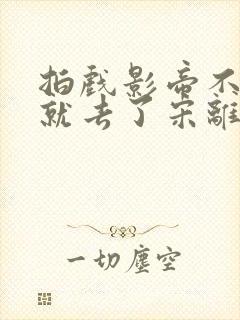 拍戏影帝不
就去了宋離
一切塵空